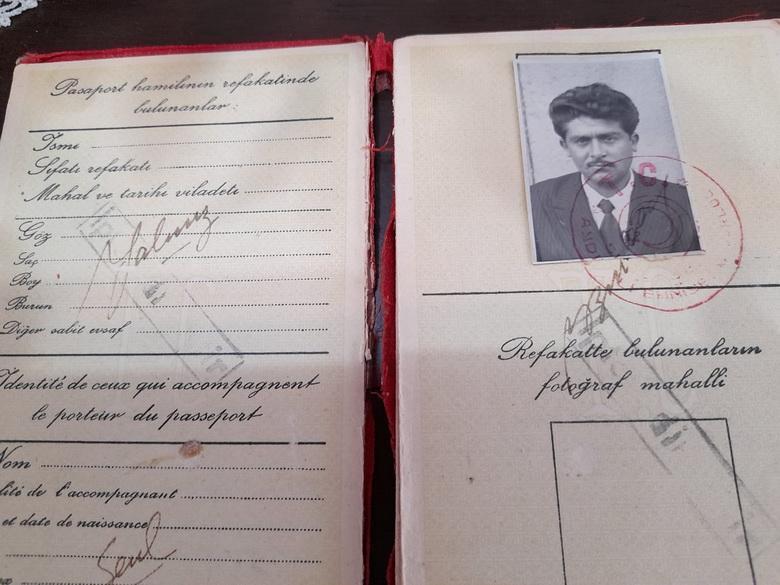 Pasaport hamilinin refakatinde
bulunanlar :
İsmi
Sıfatı refakatı
Mahal ve tarihi viladeti
Göz
Saç
Boy
Burun
Diğer sabit evsaf
Yalnız
Identité de ceux qui accompagnent
le porteur du passeport
Nom
lité de l'accompagnant
et date de naissance
Seul
C
Refakatte bulunanların
fotoğraf mahalli